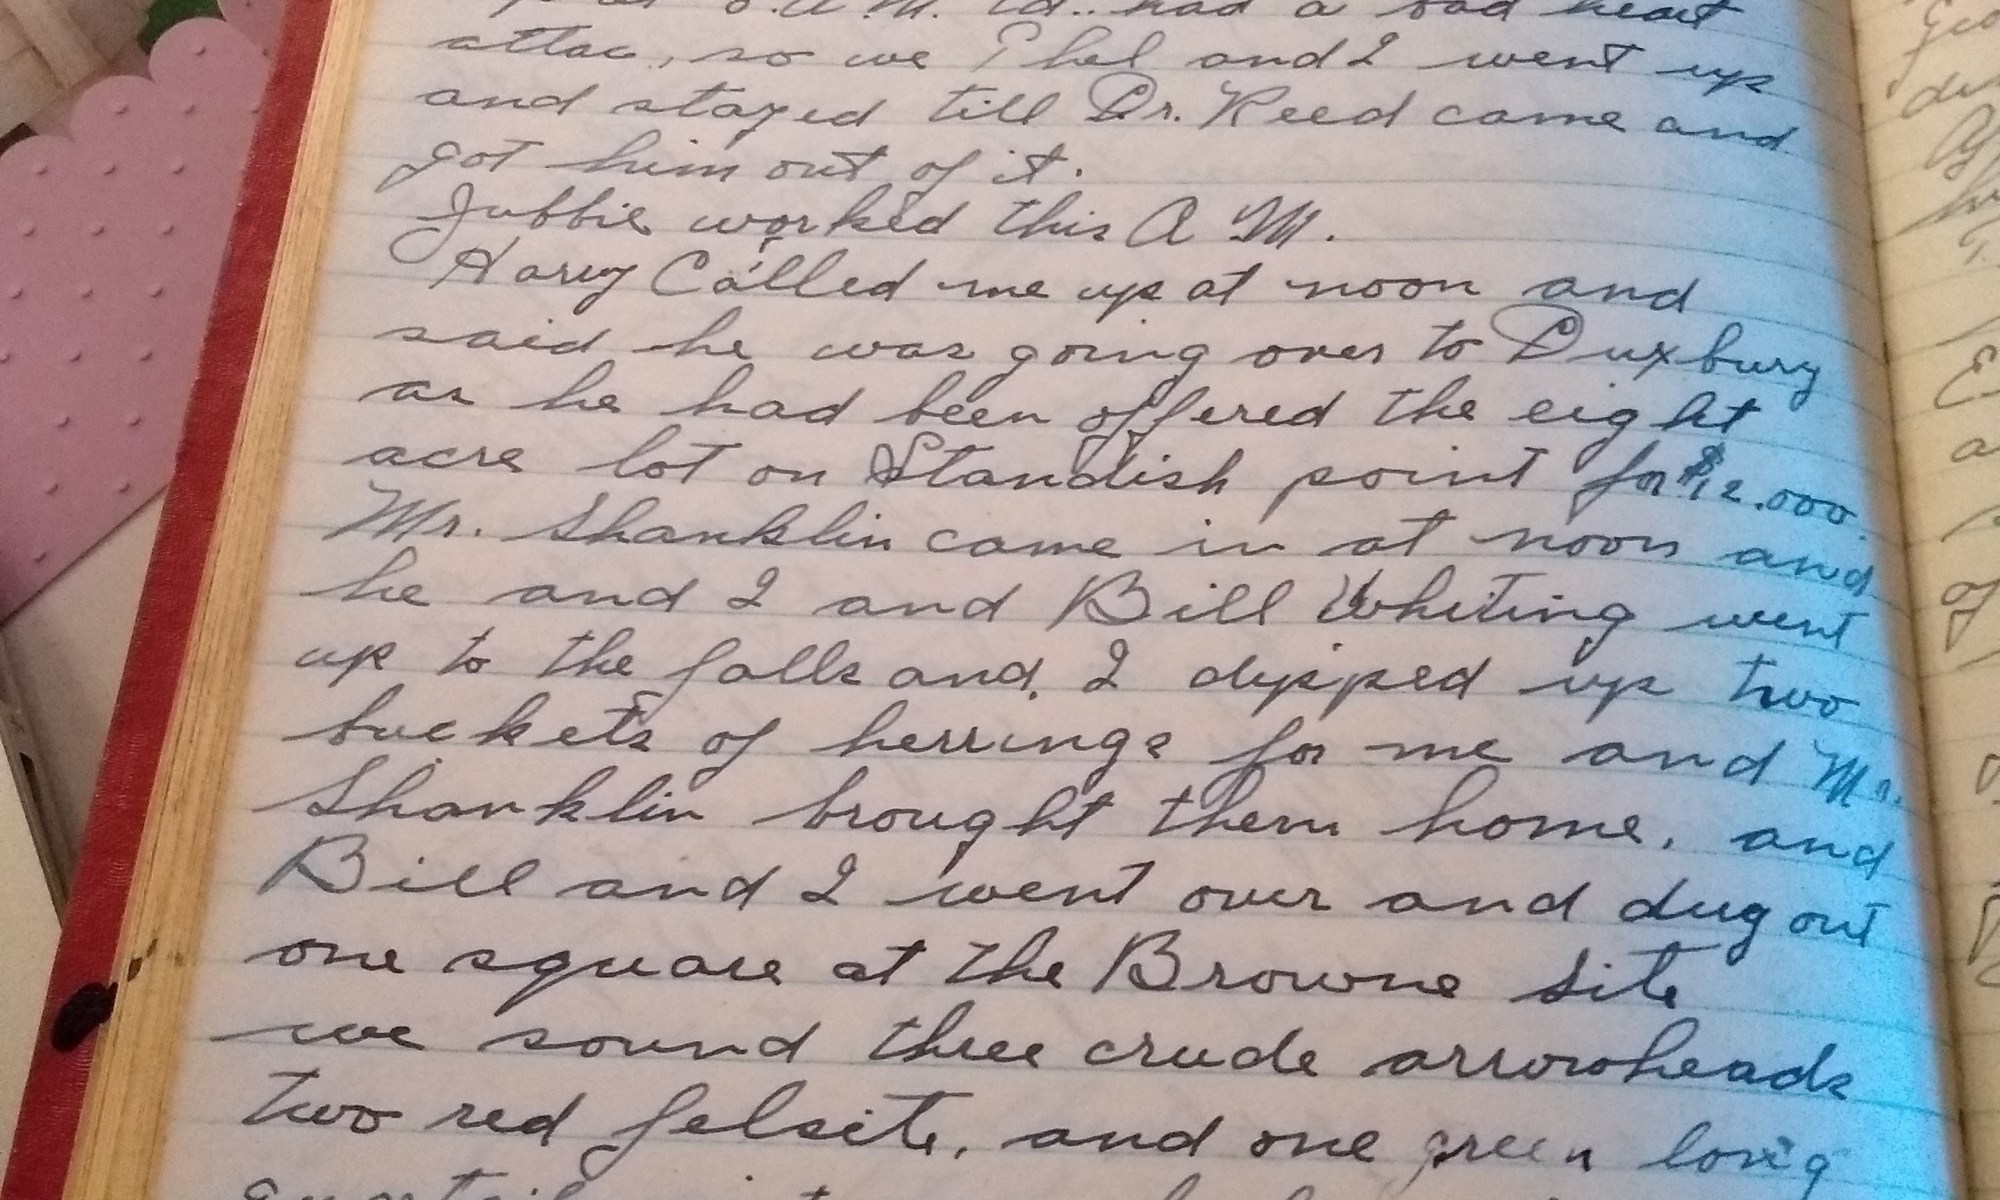 had a bad heart
attac, so we Thel and I went up
and stayed till Dr. Reed came and
got him out of it.
Jubbie worked this A M.
Harry Called me up at noon and
said he was going over to Duxbury
as he had been offered the eight
acre lot on Standish point for $12.000
Mr. Shanklin came in at noon and
he and I and Bill Whiting went
up to the falls and, I dipped up two
buckets of herrings for me and Mr.
Shanklin brought them home, and
Bill and I went over and dug out
one square at the Browne site
we found three crude arrowheads
two red felsite, and one green long